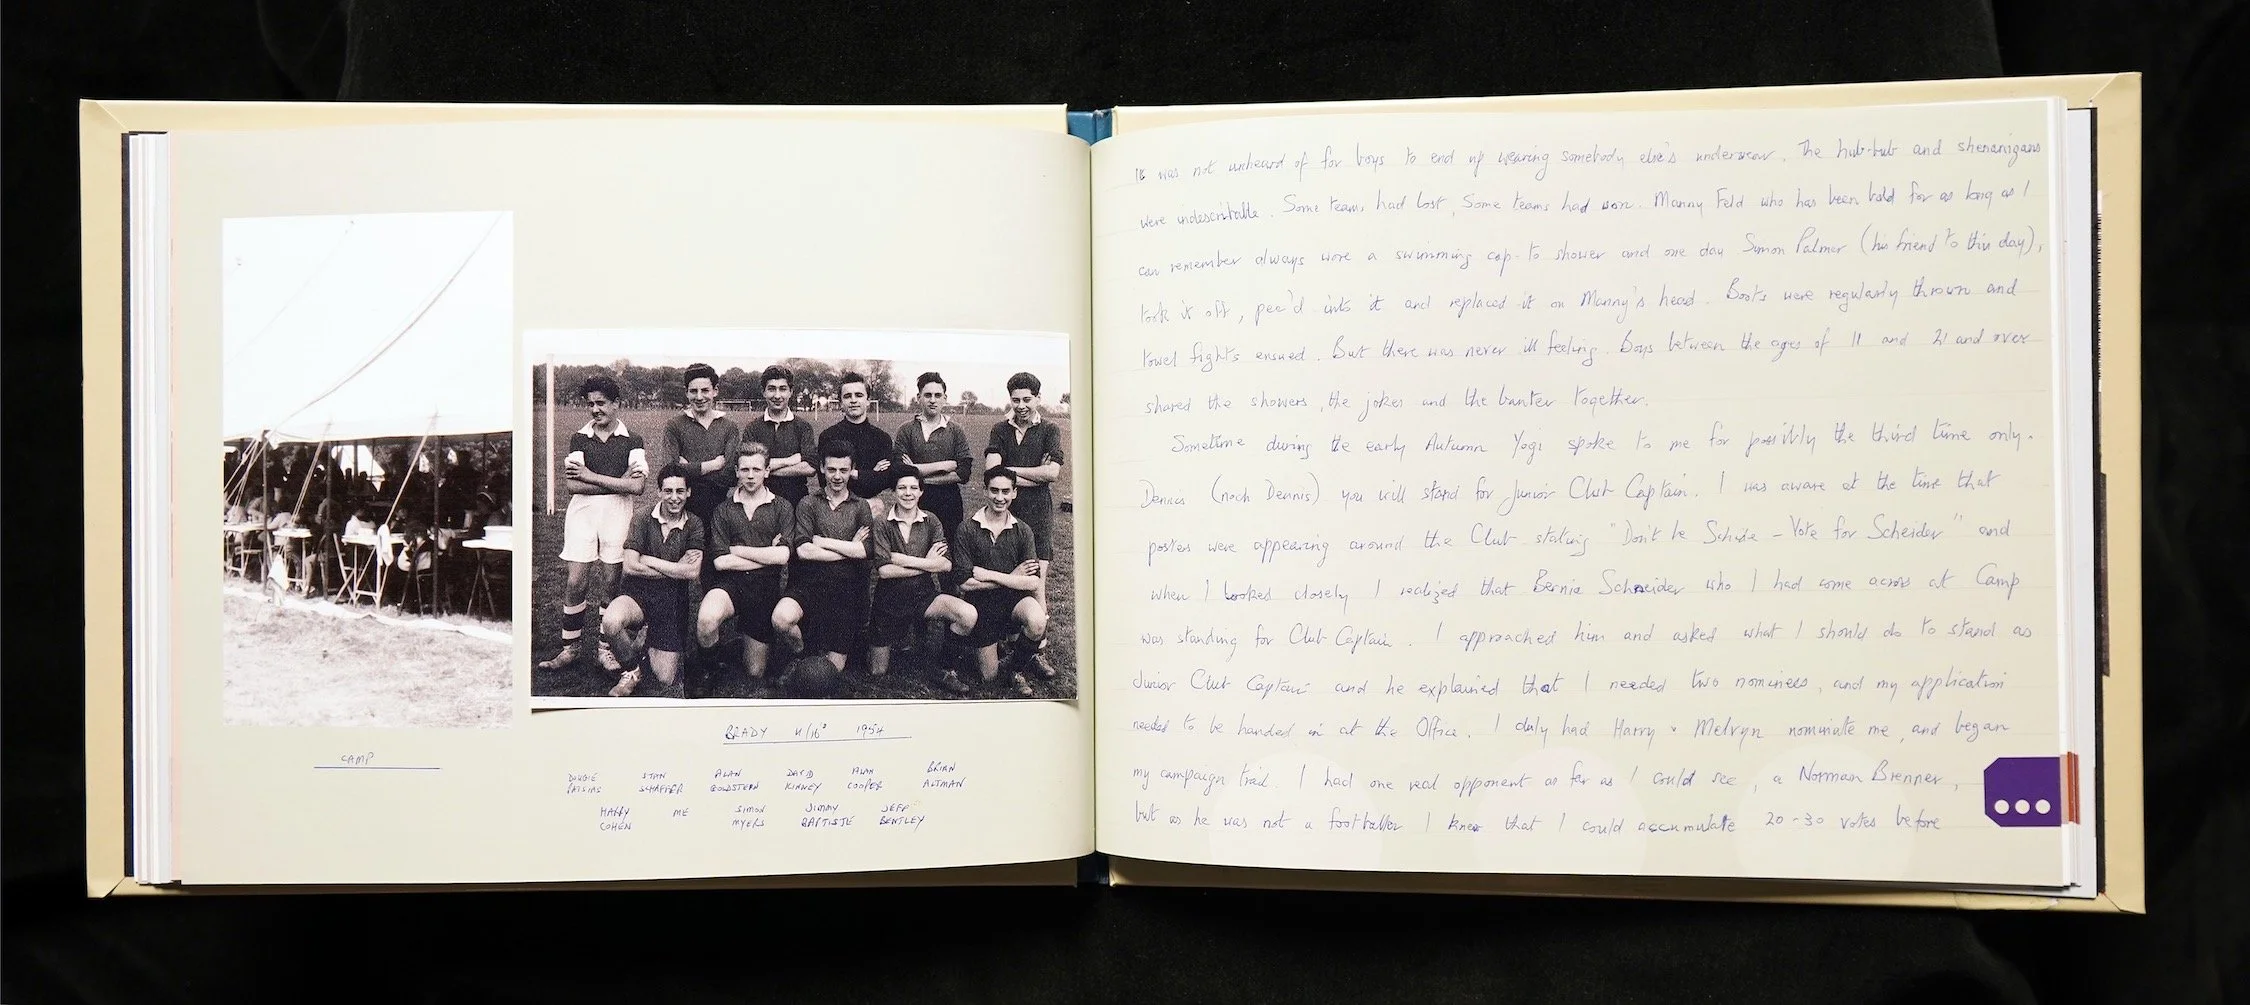 CAMP
BRADY 11/16s 1954
DOUGIE STAN ALAN DAVID ALAN BRIAN
PAISIAS SHAFFER GOLDSTERN KINNEY COOPER ALTMAN
HARRY ME SIMON JIMMY JEFF
COHEN MYERS BAPTISTE BENTLEY
It was not unheard of for boys to end up wearing somebody else's underwear. The hub-bub and shenanigans
were indescribable. Some teams had lost, Some teams had won. Manny Feld who has been bald for as long as I
can remember always wore a swimming cap to shower and one day Simon Palmer (his friend to this day),
took it off, pee'd into it and replaced it on Manny's head. Boots were regularly thrown and
towel fights ensued. But there was never ill feeling. Boys between the ages of 11 and 21 and over
shared the showers, the jokes and the banter together.
Sometime during the early Autumn Yogi spoke to me for possibly the third time only.
Dennis (noch Dennis) you will stand for Junior Club Captain. I was aware at the time that
posters were appearing around the Club stating "Don't be Schide - Vote for Scheider" and
when I looked closely I realized that Bernie Schneider who I had come across at Camp
was standing for Club Captain. I approached him and asked what I should do to stand as
Junior Club Captain and he explained that I needed two nominees, and my application
needed to be handed in at the Office. I duly had Harry & Melvyn nominate me, and began
my campaign trail. I had one real opponent as far as I could see, a Norman Brenner,
but as he was not a footballer I knew that I could accumulate 20-30 votes before